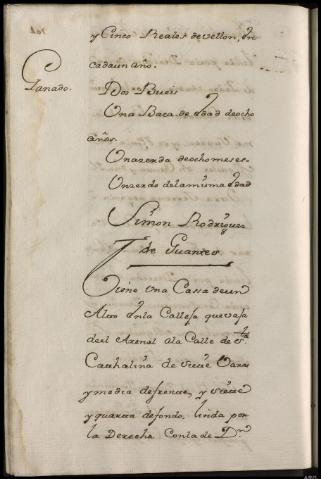 y Cinco Reales de vellon, En
cada un año.
Ganado.
Dos Bueis
Una Baca de Edad de ocho
años.
Una zerda de ocho meses.
Un zerdo de la misma Edad
Simon Rodriguez
de Guantes
Tiene Una Cassa de un
Alto En la Calleja que vasa
de el Arenal a la Calle de Sta
Cathalina de siete Varas
y media de frente, y siete
y quarta de fondo, linda por
la Derecha Con la de Dn